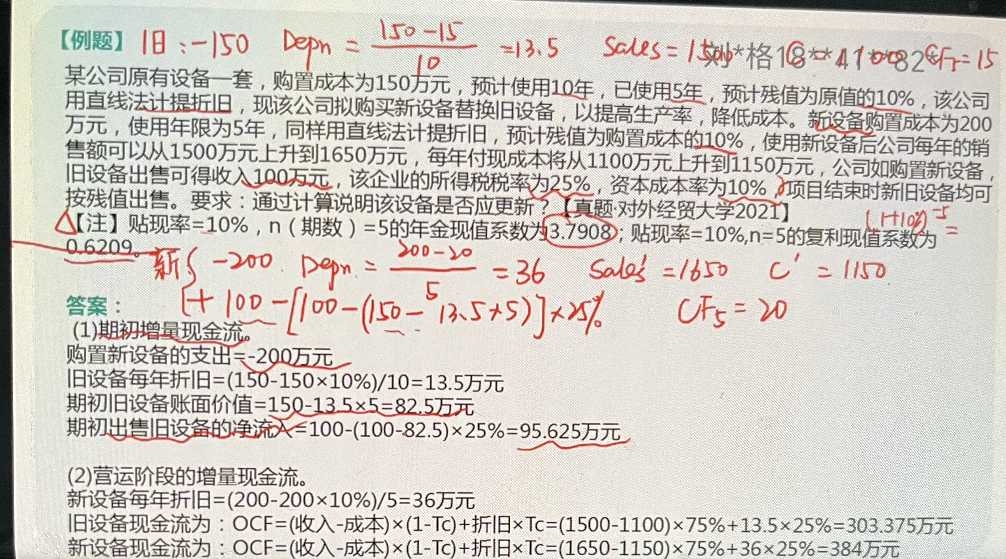 【例题】 旧:-150 Depn = 150-15 / 10 = 13.5 Sales = 15 CF₅=15
某公司原有设备一套，购置成本为150万元，预计使用10年，已使用5年，预计残值为原值的10%，该公司
用直线法计提折旧，现该公司拟购买新设备替换旧设备，以提高生产率，降低成本。新设备购置成本为200
万元，使用年限为5年，同样用直线法计提折旧，预计残值为购置成本的10%，使用新设备后公司每年的销
售额可以从1500万元上升到1650万元，每年付现成本将从1100万元上升到1150万元，公司如购置新设备，
旧设备出售可得收入100万元，该企业的所得税税率为25%，资本成本率为10%，项目结束时新旧设备均可
按残值出售。要求：通过计算说明该设备是否应更新？【真题·对外经贸大学2021】
(1+10%)⁻⁵ =
【注】贴现率=10%，n（期数）=5的年金现值系数为3.7908；贴现率=10%,n=5的复利现值系数为
0.6209。
新{ -200. Depn = 200-20 / 5 = 36 Sales' = 1650 C' = 1150
+ 100 - [100-(150-13.5×5)]×25% CF₅ = 20
答案：
(1)期初增量现金流。
购置新设备的支出=-200万元
旧设备每年折旧=(150-150×10%)/10=13.5万元
期初旧设备账面价值=150-13.5×5=82.5万元
期初出售旧设备的净流入=100-(100-82.5)×25%=95.625万元
(2)营运阶段的增量现金流。
新设备每年折旧=(200-200×10%)/5=36万元
旧设备现金流为：OCF=(收入-成本)×(1-Tc)+折旧×Tc=(1500-1100)×75%+13.5×25%=303.375万元
新设备现金流为：OCF=(收入-成本)×(1-Tc)+折旧×Tc=(1650-1150)×75%+36×25%=384万元